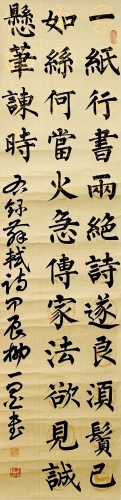 一紙行書兩絕詩遂良須鬢已
如絲何當火急傳家法欲見誠
懸筆諫時 右錄蘇軾詩甲辰柳一書